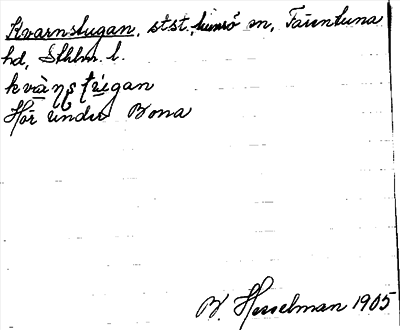 Kvarnstugan, st st. Lunsö m, Täiuntuna
hd, Sthlm. l.
kvàŋs ʈúgan
Hör under Bona
B. Hesselman 1905